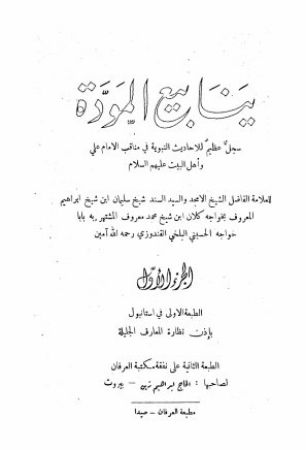 ينابيع المودة
سجل عظيم للاحاديث النبوية في مناقب الامام علي
وأهل البيت عليهم السلام
للعلامة الفاضل الشيخ الامجد والسيد السند شيخ سليمان ابن شيخ ابراهيم
المعروف بخواجه كلان ابن شيخ محمد معروف المشتهر به بابا
خواجه الحسيني البلخي القندوزي رحمه الله آمين
الجزء الأول
الطبعة الاولى في استانبول
بإذن نظارة المعارف الجليلة
الطبعة الثانية على نفقة مكتبة العرفان
لصاحبها : الحاج ابراهيم زين - بيروت
مطبعة العرفان - صيدا